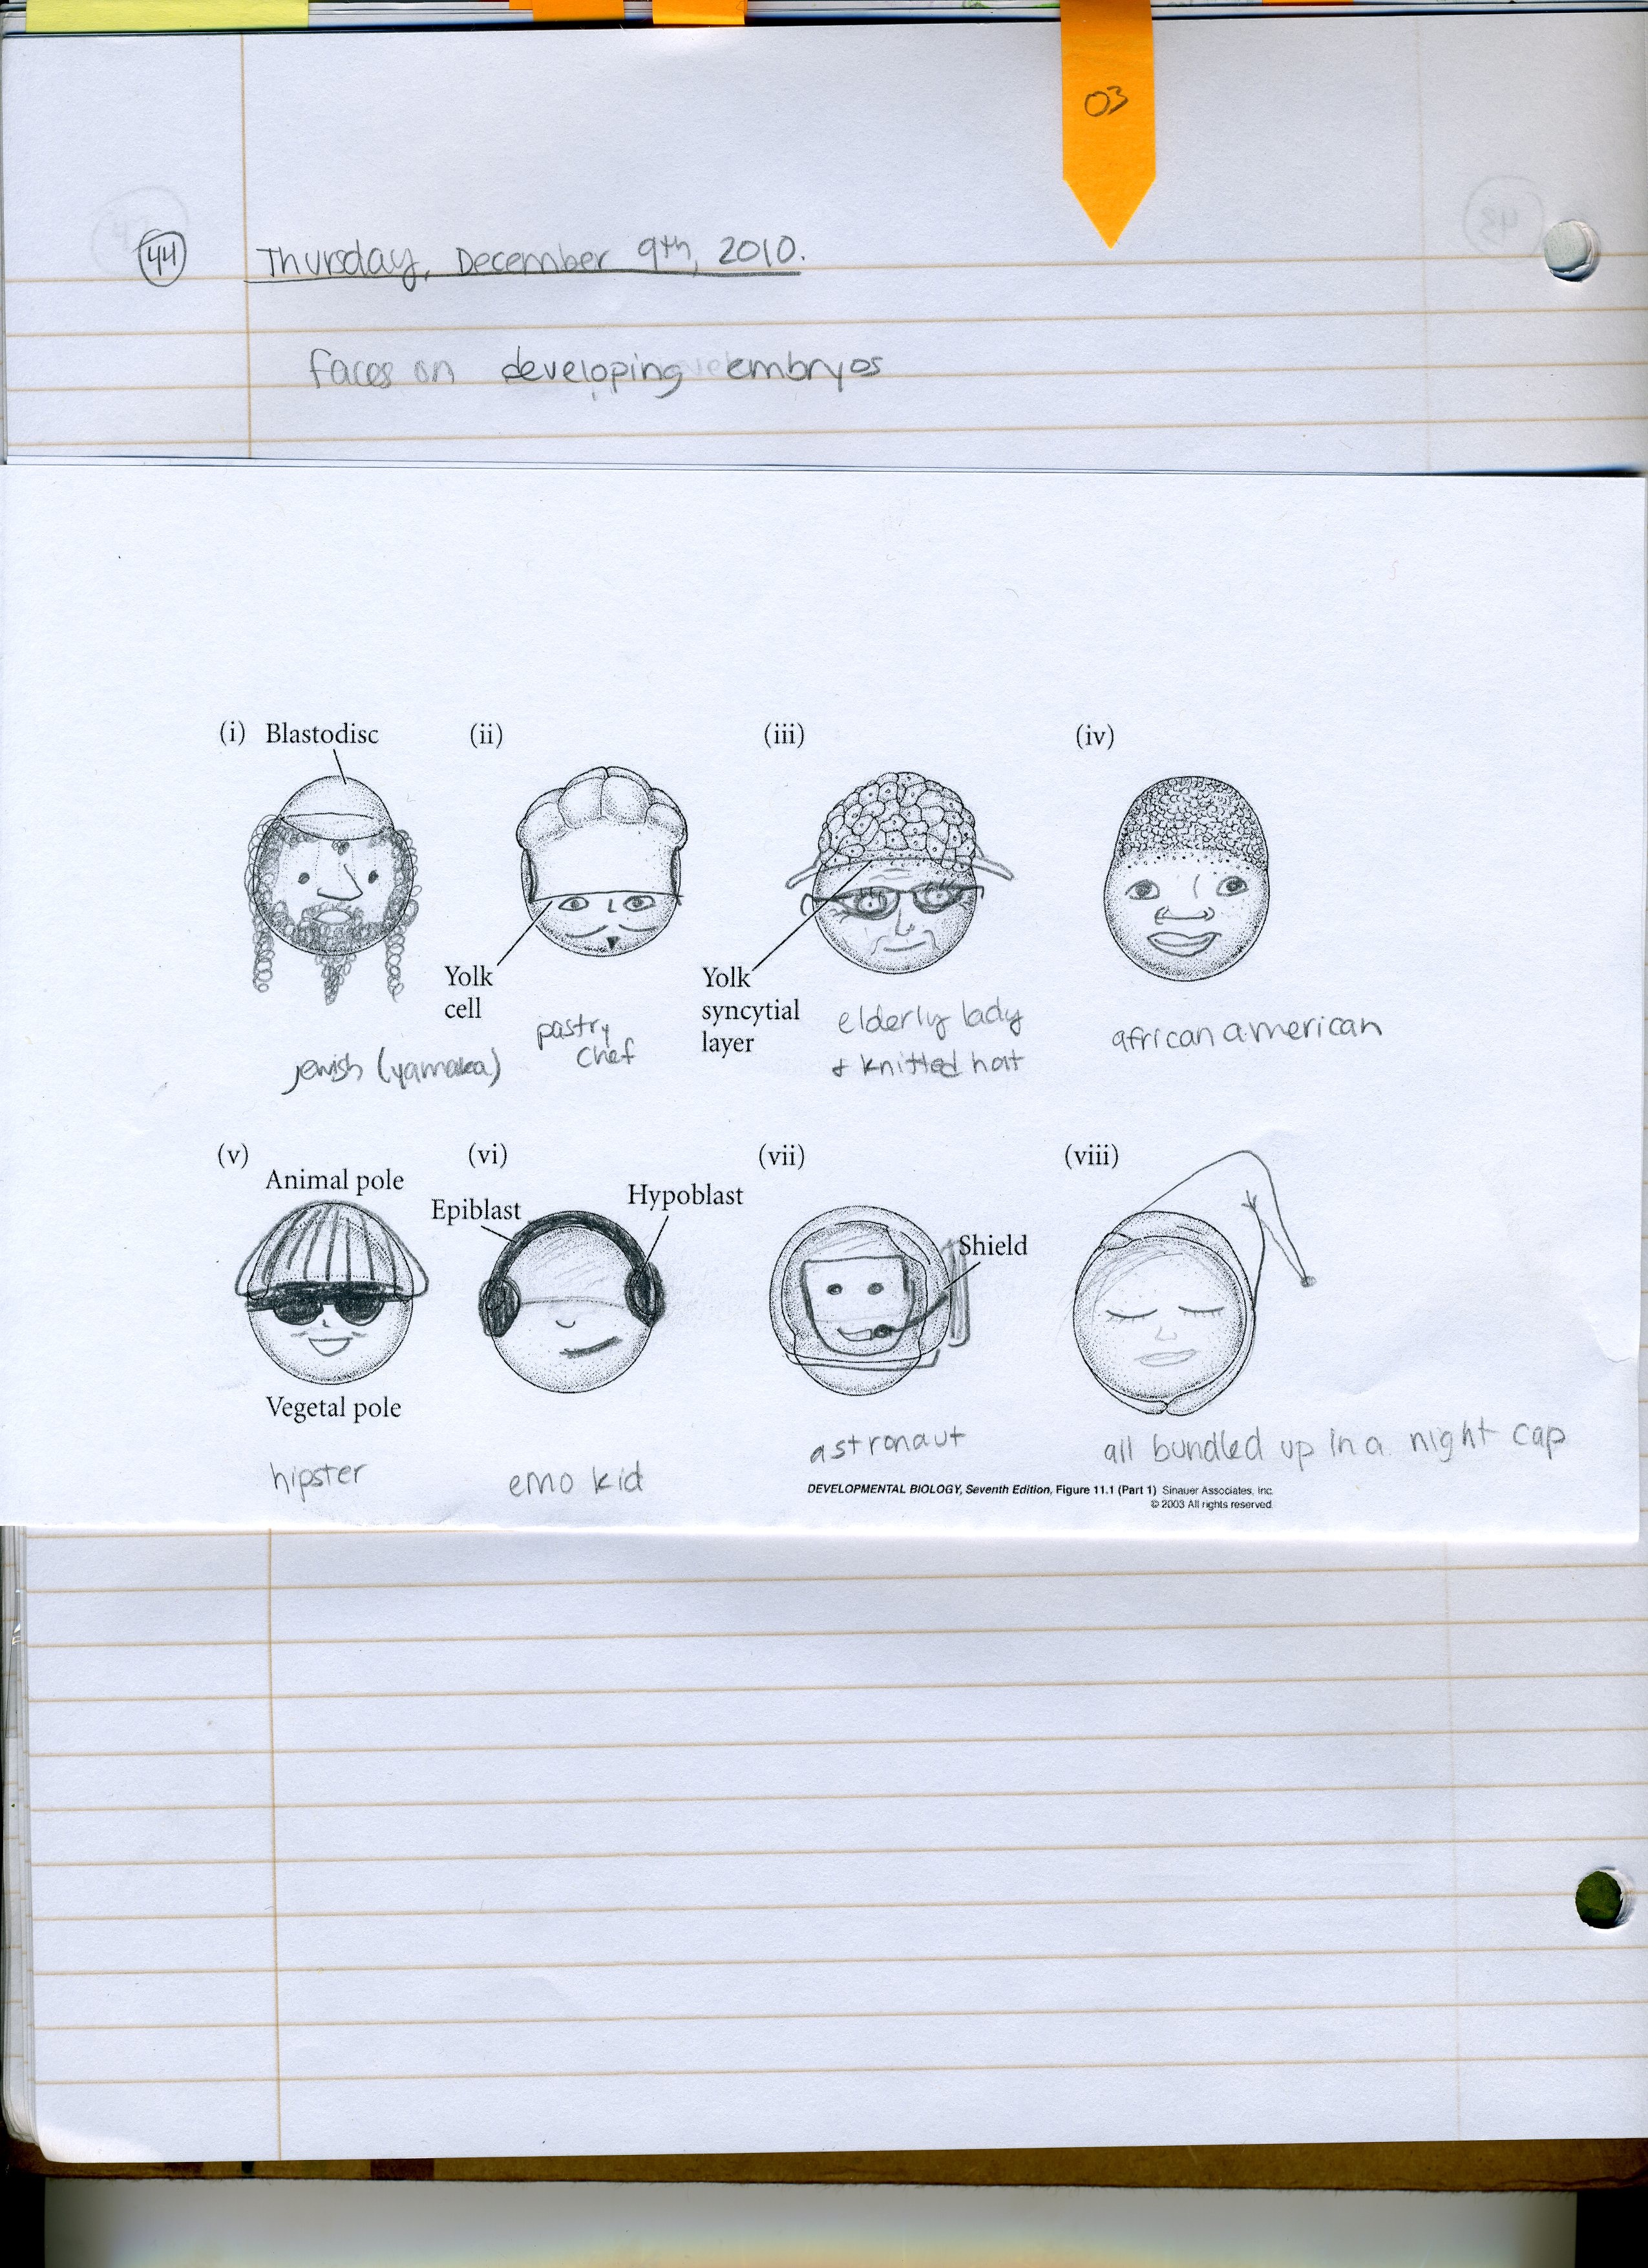 03
44
Thursday, December 9th, 2010.
faces on developing embryos
(i) Blastodisc
(ii)
(iii)
(iv)
Yolk
cell
Yolk
syncytial
layer
jewish (yamaka)
pastry
chef
elderly lady
+ knitted hat
african american
(v)
Animal pole
Vegetal pole
(vi)
Epiblast
Hypoblast
(vii)
Shield
(viii)
hipster
emo kid
astronaut
all bundled up in a night cap
DEVELOPMENTAL BIOLOGY, Seventh Edition, Figure 11.1 (Part 1) Sinauer Associates, Inc.
© 2003 All rights reserved